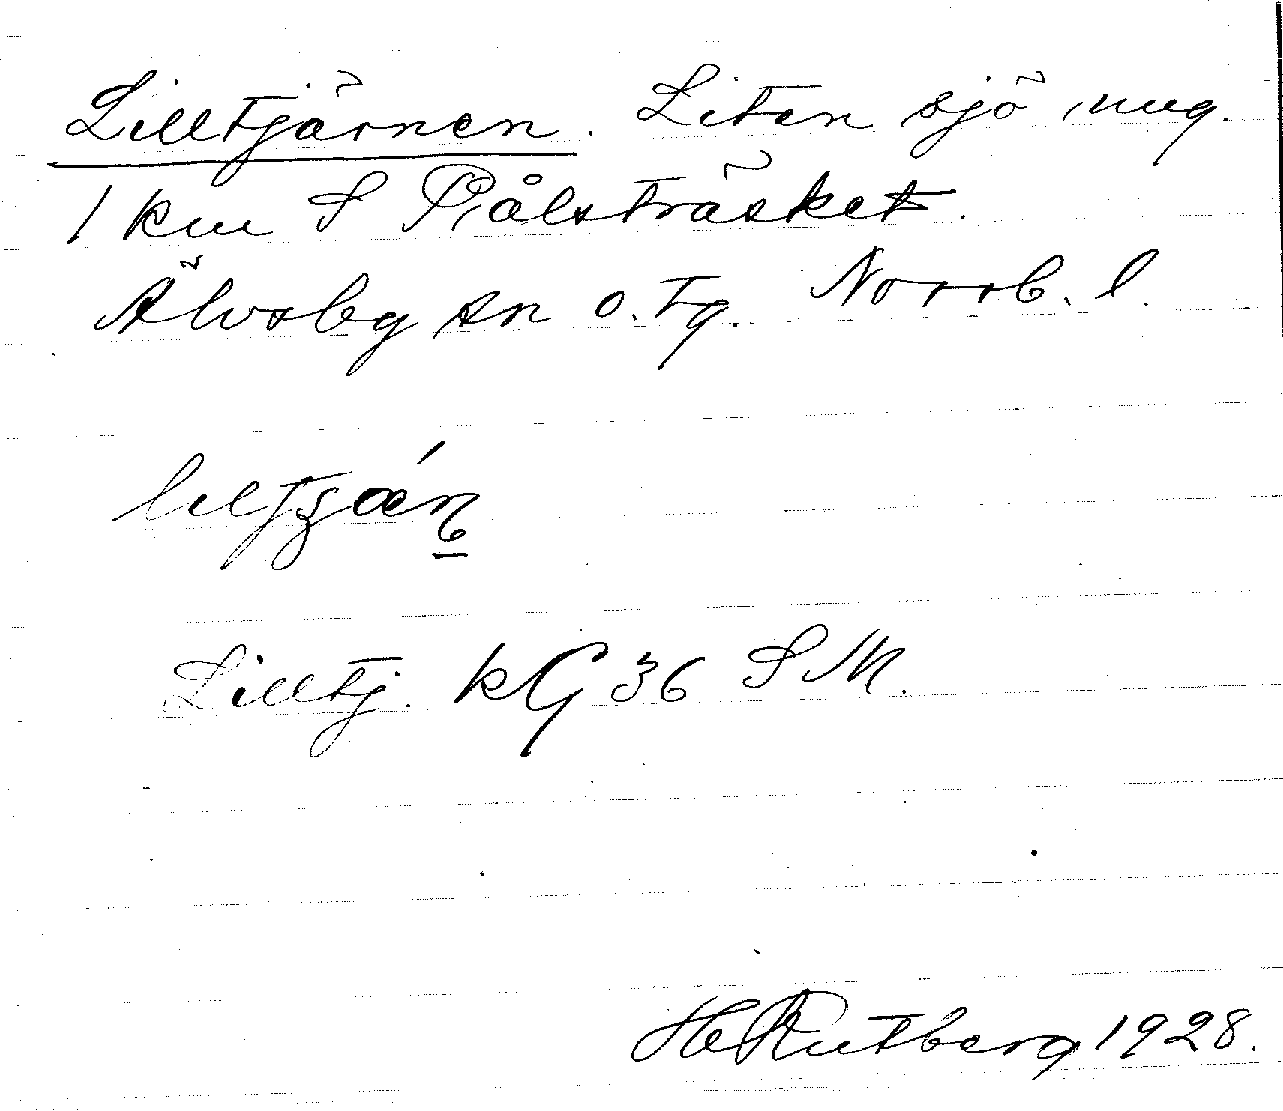 Lilltjärnen. Liten sjö ung.
1 km S Pålsträsket.
Älvsby sn o. tg. Norrb. l.
Lilltj. kG 36 SM.
H Rutberg 1928.